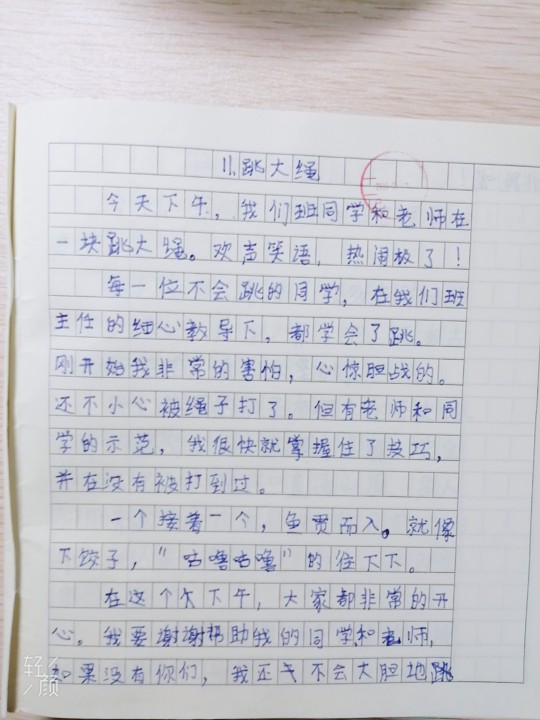 11.跳大绳
今天下午，我们班同学和老师在
一块跳大绳。欢声笑语，热闹极了！
每一位不会跳的同学，在我们班
主任的细心教导下，都学会了跳。
刚开始我非常的害怕，心惊胆战的。
还不小心被绳子打了。但有老师和同
学的示范，我很快就掌握住了技巧，
并在没有被打到过。
一个接着一个，鱼贯而入。就像
下饺子，“咕噜咕噜”的往下下。
在这个下午，大家都非常的开
心。我要谢谢帮助我的同学和老师，
如果没有你们，我还不会大胆地跳
轻颜